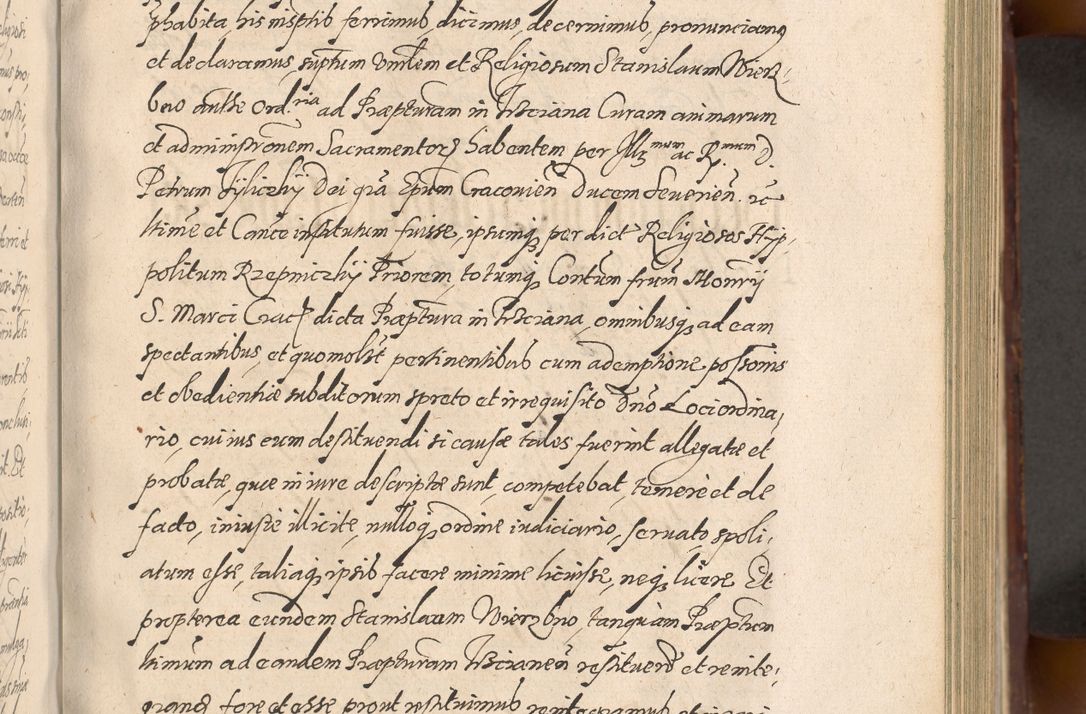 phabita, his nisptib ferrimus, dicimus, decernimus, pronunciamus
et declaramus, suptum Vmlem et Religiosum Stanislaum Wierz,
bno authe Ord.ria ad Præpturam in Trsciana Curam animarum
et adminisronem Sacramentorz habentem per Illmum ac R.mum D.
Petrum Tyliczkij Dei gra Epum Cracouien Ducem Seuerien. rc
ltime et Canōce institutum fuisse, ipsumq; per dict Religiosos Hyp,
politum Rzepniczkij Priorem, totumq; Contum frum Monrij
S. Marci Crac dicta Præptura in Trsciana, omnibusq; ad eam
spectantibus, et quomolbt pertinentibus cum ademptione possonis
et obedientiæ subditorum spreto et irrequisito Dno Loci ordina,
rio, cuius eum destituendi si causæ tales fuerint allegatæ et
probatæ, quæ in iure descriptæ sunt, competebat, temere et de
facto, iniuste illicite, nulloq; ordine iudiciario, seruato spoli,
atum esse, taliaq; ipsis facere minime licuisse, neq; licere. Et
propterea eundem Stanislaum Wierzbno, tanquam Præptum
ltimum ad eandem Præpturam Trscianen restituend et reinte,
grand fore et esse prout restituimus reintegramus et